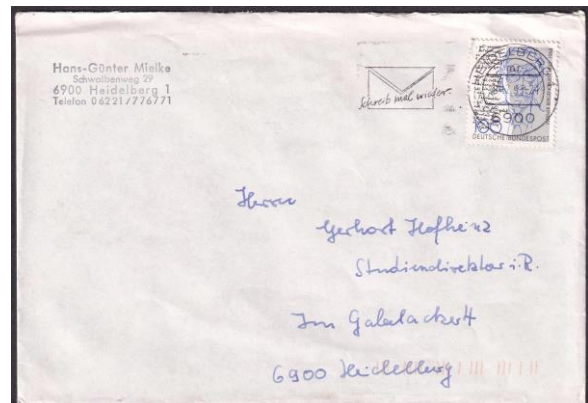 Hans-Günter Mielke
Schwalbenweg 29
6900 Heidelberg 1
Telefon 06221/776771
Schreib mal wieder.
HEIDELBERG
6900
100
DEUTSCHE BUNDESPOST
Herrn
Gerhart Hofheinz
Studiendirektor i.R.
Im
6900 Heidelberg